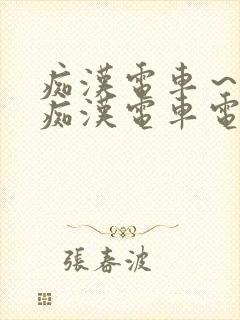 痴漢電車~
痴漢電車電
張春波